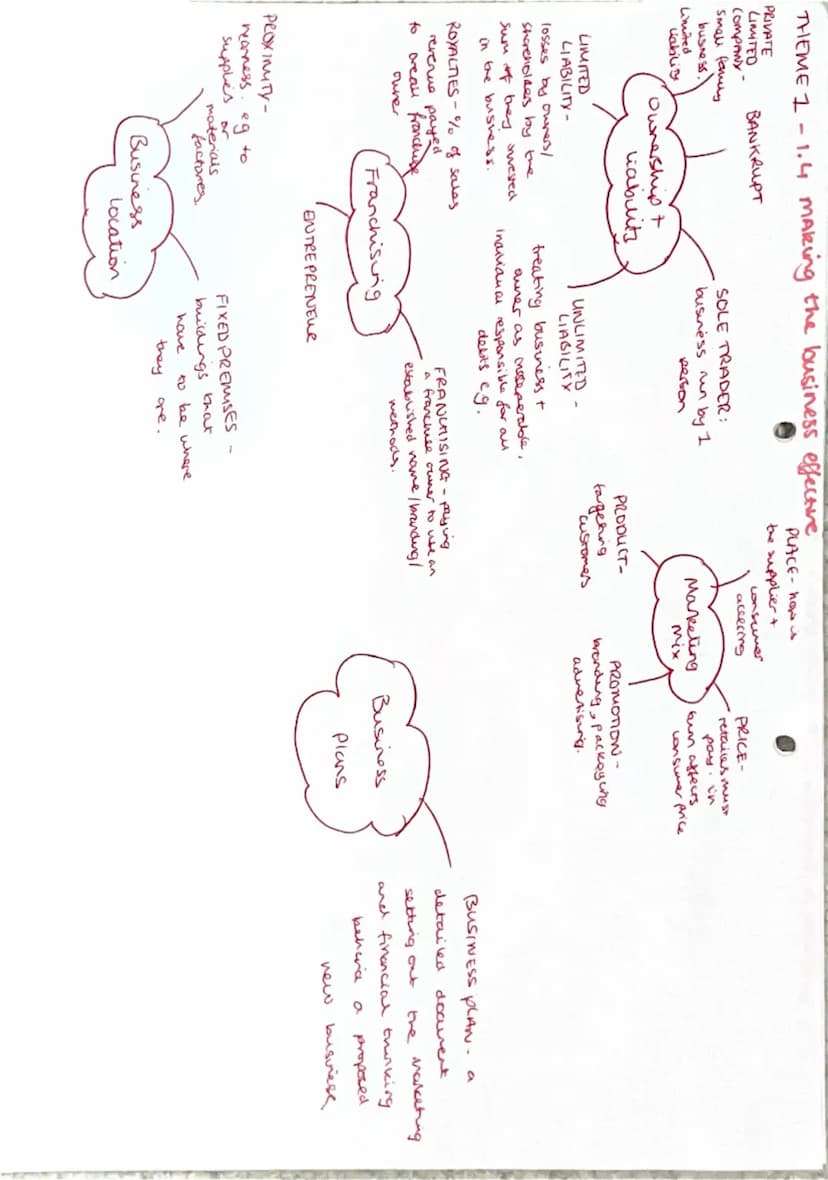 THEME 1 - 1.4 making the business effective
PRIVATE
LIMITED
COMPANY -
small family
business.
Limited
liability
BANKRUPT
Ownership +
liability
SOLE TRADER:
business run by 1
person
LIMITED
LIABILITY -
losses by owner/
shareholders by the
sum of they invested
in the business.
UNLIMITED
LIABILITY -
treating business +
owner as inseperable,
individual responsible for all
debts eg.
PLACE - how is
the supplier +
consumer
Marketing
mix
PRICE -
retailers must
pay. in
turn affects
consumer price
PRODUCT -
targeting
customers
PROMOTION -
branding, packaging
advertising.
ROYALTIES - % of sales
revenue payed
to overall franchise
owner
Franchising
ENTREPRENEUR
FRANCHISING - paying
a franchise owner to use an
established name/branding/
methods.
Business
plans
BUSINESS PLAN - a
detailed document
setting out the marketing
and financial thinking
behind a proposed
new business
PROXIMITY -
nearness. eg to
supplies or
materials
factories.
Business
location
FIXED PREMISES -
buildings that
have to be where
they are.